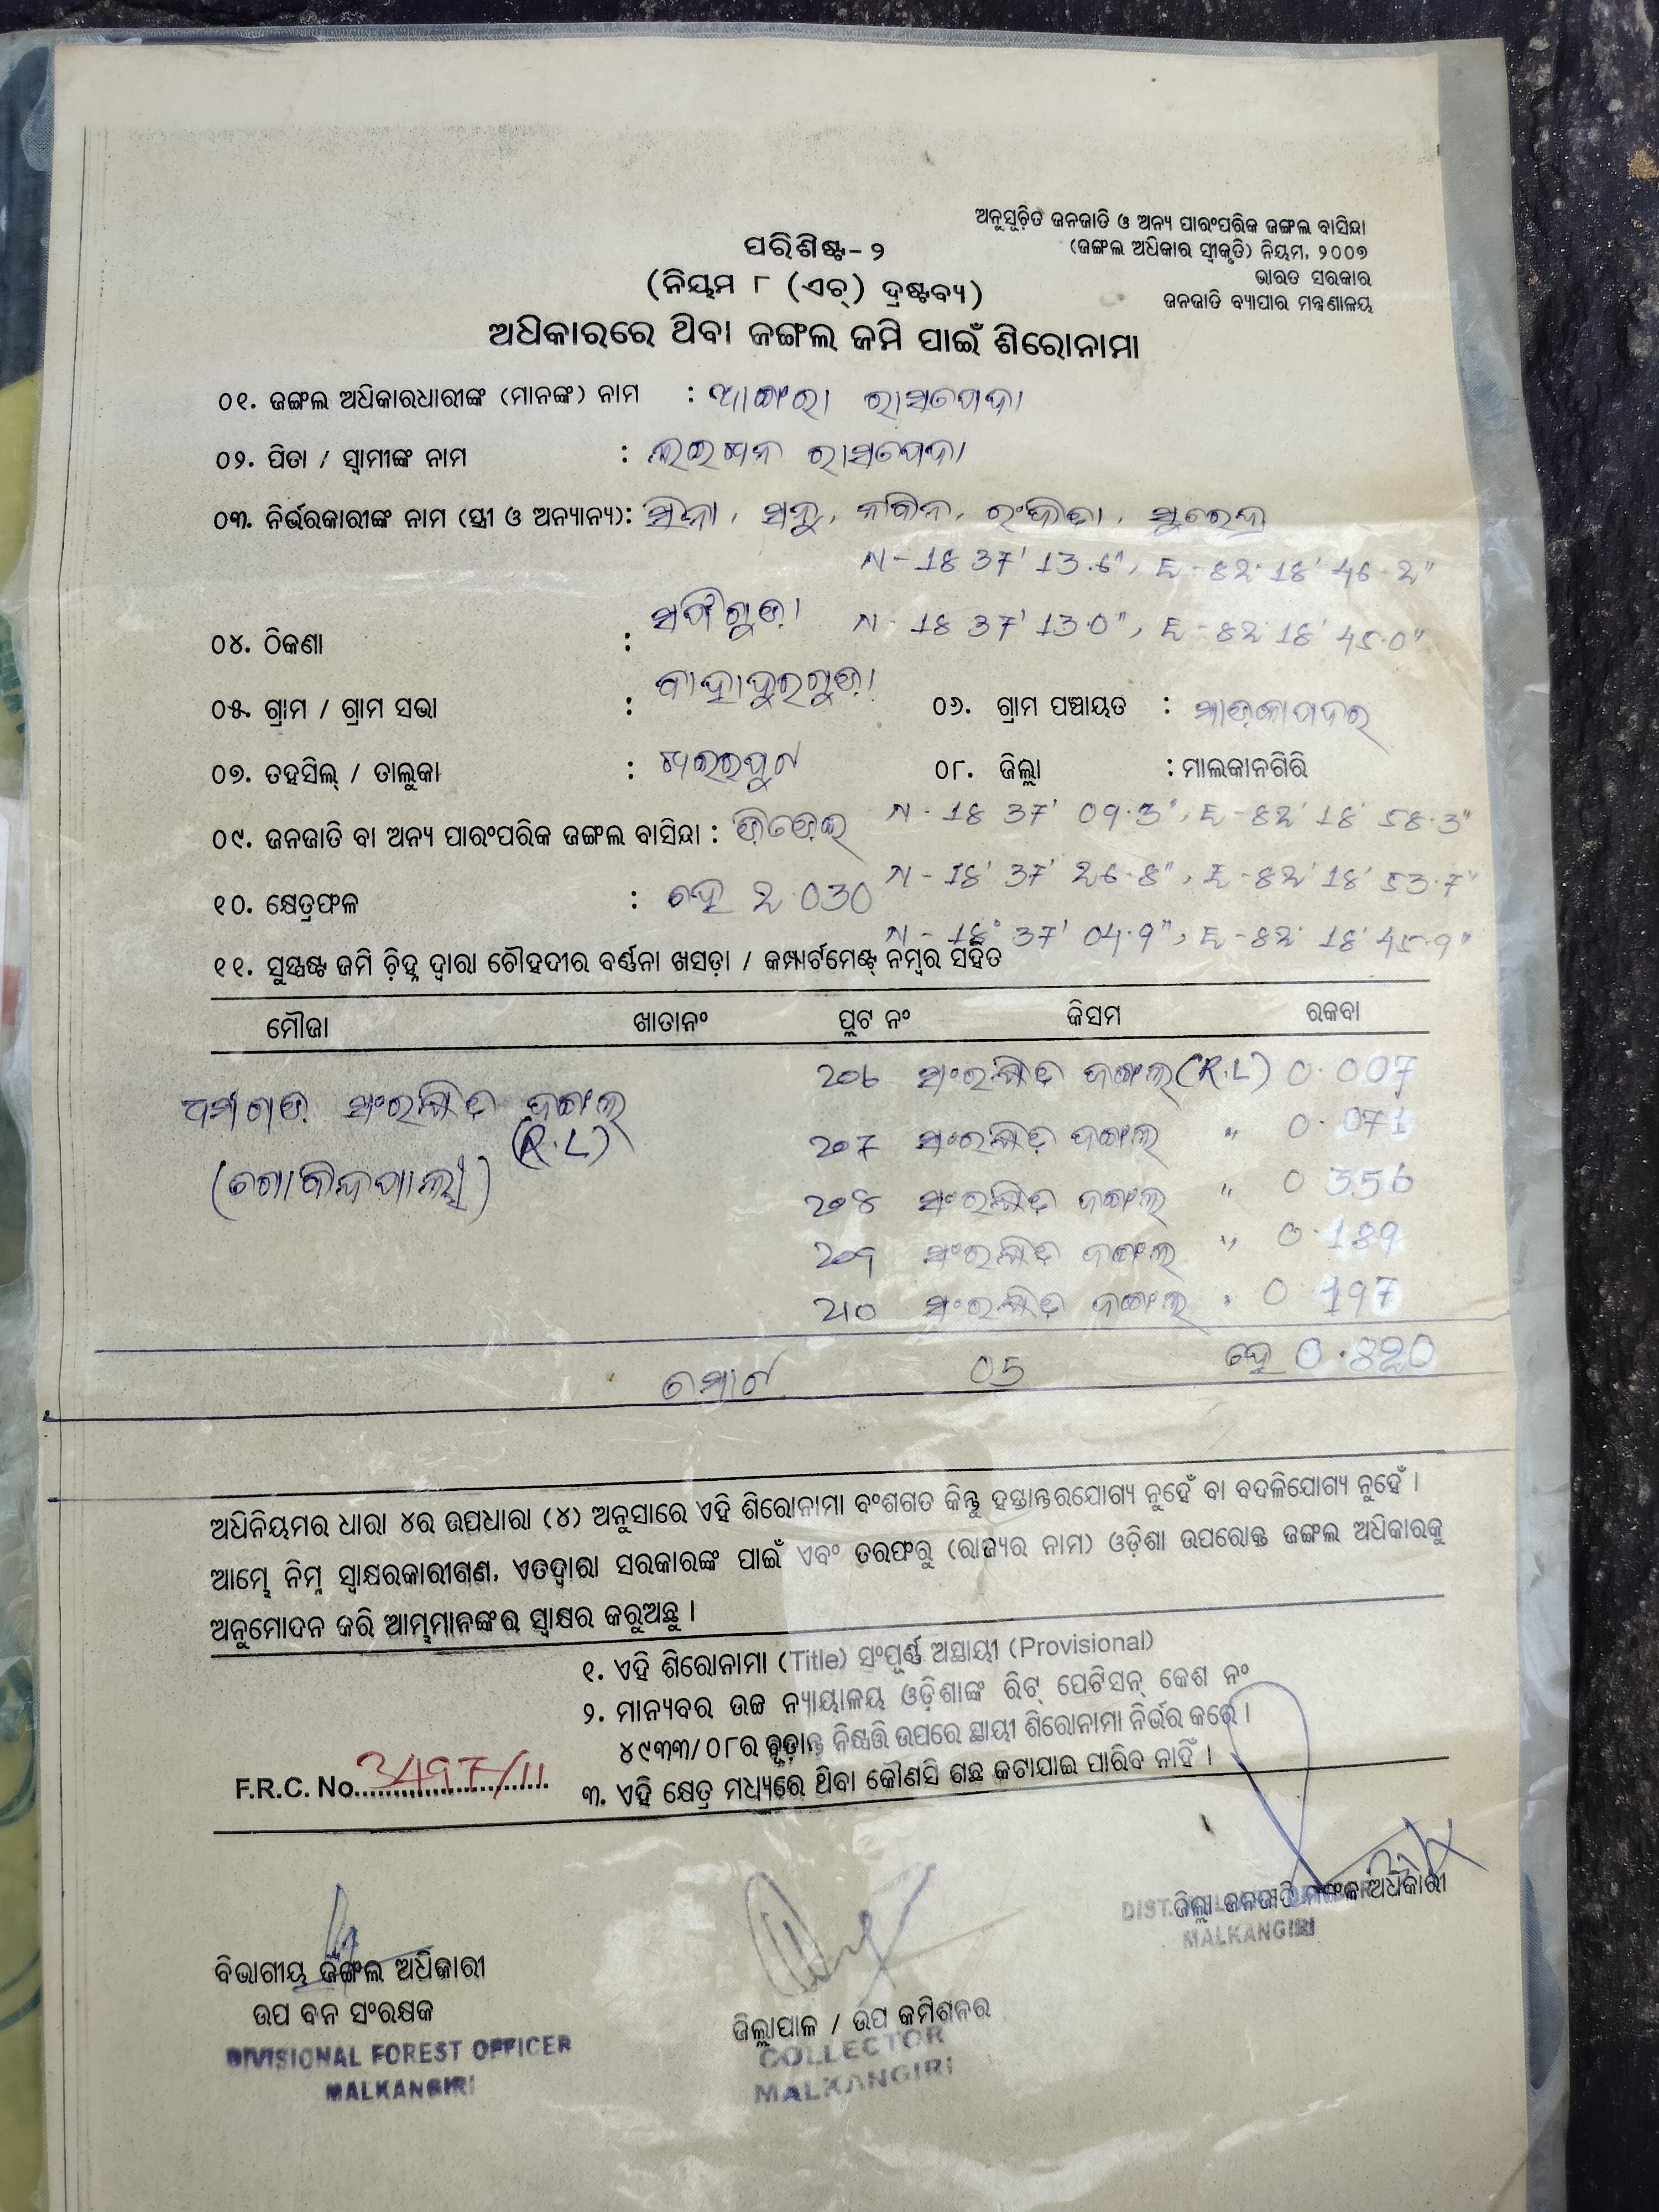 ଅନୁସୂଚିତ ଜନଜାତି ଓ ଅନ୍ୟ ପାରଂପରିକ ଜଙ୍ଗଲ ବାସିନ୍ଦା
(ଜଙ୍ଗଲ ଅଧିକାର ସ୍ୱୀକୃତି) ନିୟମ, ୨୦୦୭
ଭାରତ ସରକାର
ଜନଜାତି ବ୍ୟାପାର ମନ୍ତ୍ରଣାଳୟ
ପରିଶିଷ୍ଟ- ୨
(ନିୟମ ୮ (ଏଚ୍) ଦ୍ରଷ୍ଟବ୍ୟ)
ଅଧିକାରରେ ଥିବା ଜଙ୍ଗଲ ଜମି ପାଇଁ ଶିରୋନାମା
୦୧. ଜଙ୍ଗଲ ଅଧିକାରଧାରୀଙ୍କ (ମାନଙ୍କ) ନାମ :
୦୨. ପିତା / ସ୍ୱାମୀଙ୍କ ନାମ :
୦୩. ନିର୍ଭରକାରୀଙ୍କ ନାମ (ସ୍ତ୍ରୀ ଓ ଅନ୍ୟାନ୍ୟ):
N - 18 37' 13.6", E - 82 18' 46.2"
୦୪. ଠିକଣା : N - 18 37' 13.0", E - 82 18' 45.0"
୦୫. ଗ୍ରାମ / ଗ୍ରାମ ସଭା : ୦୬. ଗ୍ରାମ ପଞ୍ଚାୟତ :
୦୭. ତହସିଲ୍ / ତାଲୁକା : ଖଇରପୁଟ ୦୮. ଜିଲ୍ଲା : ମାଲକାନଗିରି
N - 18 37' 09.3", E - 82 18' 58.3"
୦୯. ଜନଜାତି ବା ଅନ୍ୟ ପାରଂପରିକ ଜଙ୍ଗଲ ବାସିନ୍ଦା :
N - 18 37' 26.8", E - 82 18' 53.7"
୧୦. କ୍ଷେତ୍ରଫଳ : ହେ 2.030
N - 18° 37' 04.9", E - 82 18' 45.9"
୧୧. ସୁସ୍ପଷ୍ଟ ଜମି ଚିହ୍ନ ଦ୍ୱାରା ଚୌହଦୀର ବର୍ଣ୍ଣନା ଖସଡ଼ା / କମ୍ପାର୍ଟମେଣ୍ଟ୍ ନମ୍ବର ସହିତ
ମୌଜା ଖାତାନଂ ପ୍ଲଟ ନଂ କିସମ ରକବା
206 ସଂରକ୍ଷିତ ଜଙ୍ଗଲ (R.L) 0.007
ସଂରକ୍ଷିତ ଜଙ୍ଗଲ (R.L)
207 ସଂରକ୍ଷିତ ଜଙ୍ଗଲ " 0.071
(ଗୋବିନ୍ଦପାଲୀ)
208 ସଂରକ୍ଷିତ ଜଙ୍ଗଲ " 0.356
209 ସଂରକ୍ଷିତ ଜଙ୍ଗଲ " 0.189
210 ସଂରକ୍ଷିତ ଜଙ୍ଗଲ " 0.197
ମୋଟ 05 ହେ 0.820
ଅଧିନିୟମର ଧାରା ୪ର ଉପଧାରା (୪) ଅନୁସାରେ ଏହି ଶିରୋନାମା ବଂଶଗତ କିନ୍ତୁ ହସ୍ତାନ୍ତରଯୋଗ୍ୟ ନୁହେଁ ବା ବଦଳିଯୋଗ୍ୟ ନୁହେଁ ।
ଆମ୍ଭେ ନିମ୍ନ ସ୍ୱାକ୍ଷରକାରୀଗଣ, ଏତଦ୍ୱାରା ସରକାରଙ୍କ ପାଇଁ ଏବଂ ତରଫରୁ (ରାଜ୍ୟର ନାମ) ଓଡ଼ିଶା ଉପରୋକ୍ତ ଜଙ୍ଗଲ ଅଧିକାରକୁ
ଅନୁମୋଦନ କରି ଆମ୍ଭମାନଙ୍କର ସ୍ୱାକ୍ଷର କରୁଅଛୁ ।
୧. ଏହି ଶିରୋନାମା (Title) ସଂପୂର୍ଣ୍ଣ ଅସ୍ଥାୟୀ (Provisional)
୨. ମାନ୍ୟବର ଉଚ୍ଚ ନ୍ୟାୟାଳୟ ଓଡ଼ିଶାଙ୍କ ରିଟ୍ ପେଟିସନ୍ କେଶ ନଂ
୪୯୩୩/୦୮ର ଚୂଡ଼ାନ୍ତ ନିଷ୍ପତ୍ତି ଉପରେ ସ୍ଥାୟୀ ଶିରୋନାମା ନିର୍ଭର କରେ ।
F.R.C. No. 3497/11
୩. ଏହି କ୍ଷେତ୍ର ମଧ୍ୟରେ ଥିବା କୌଣସି ଗଛ କଟାଯାଇ ପାରିବ ନାହିଁ ।
ଜିଲ୍ଲା ଜନଜାତି ମଙ୍ଗଳ ଅଧିକାରୀ
MALKANGIRI
ବିଭାଗୀୟ ଜଙ୍ଗଲ ଅଧିକାରୀ
ଉପ ବନ ସଂରକ୍ଷକ
DIVISIONAL FOREST OFFICER
MALKANGIRI
ଜିଲ୍ଲାପାଳ / ଉପ କମିଶନର
COLLECTOR
MALKANGIRI